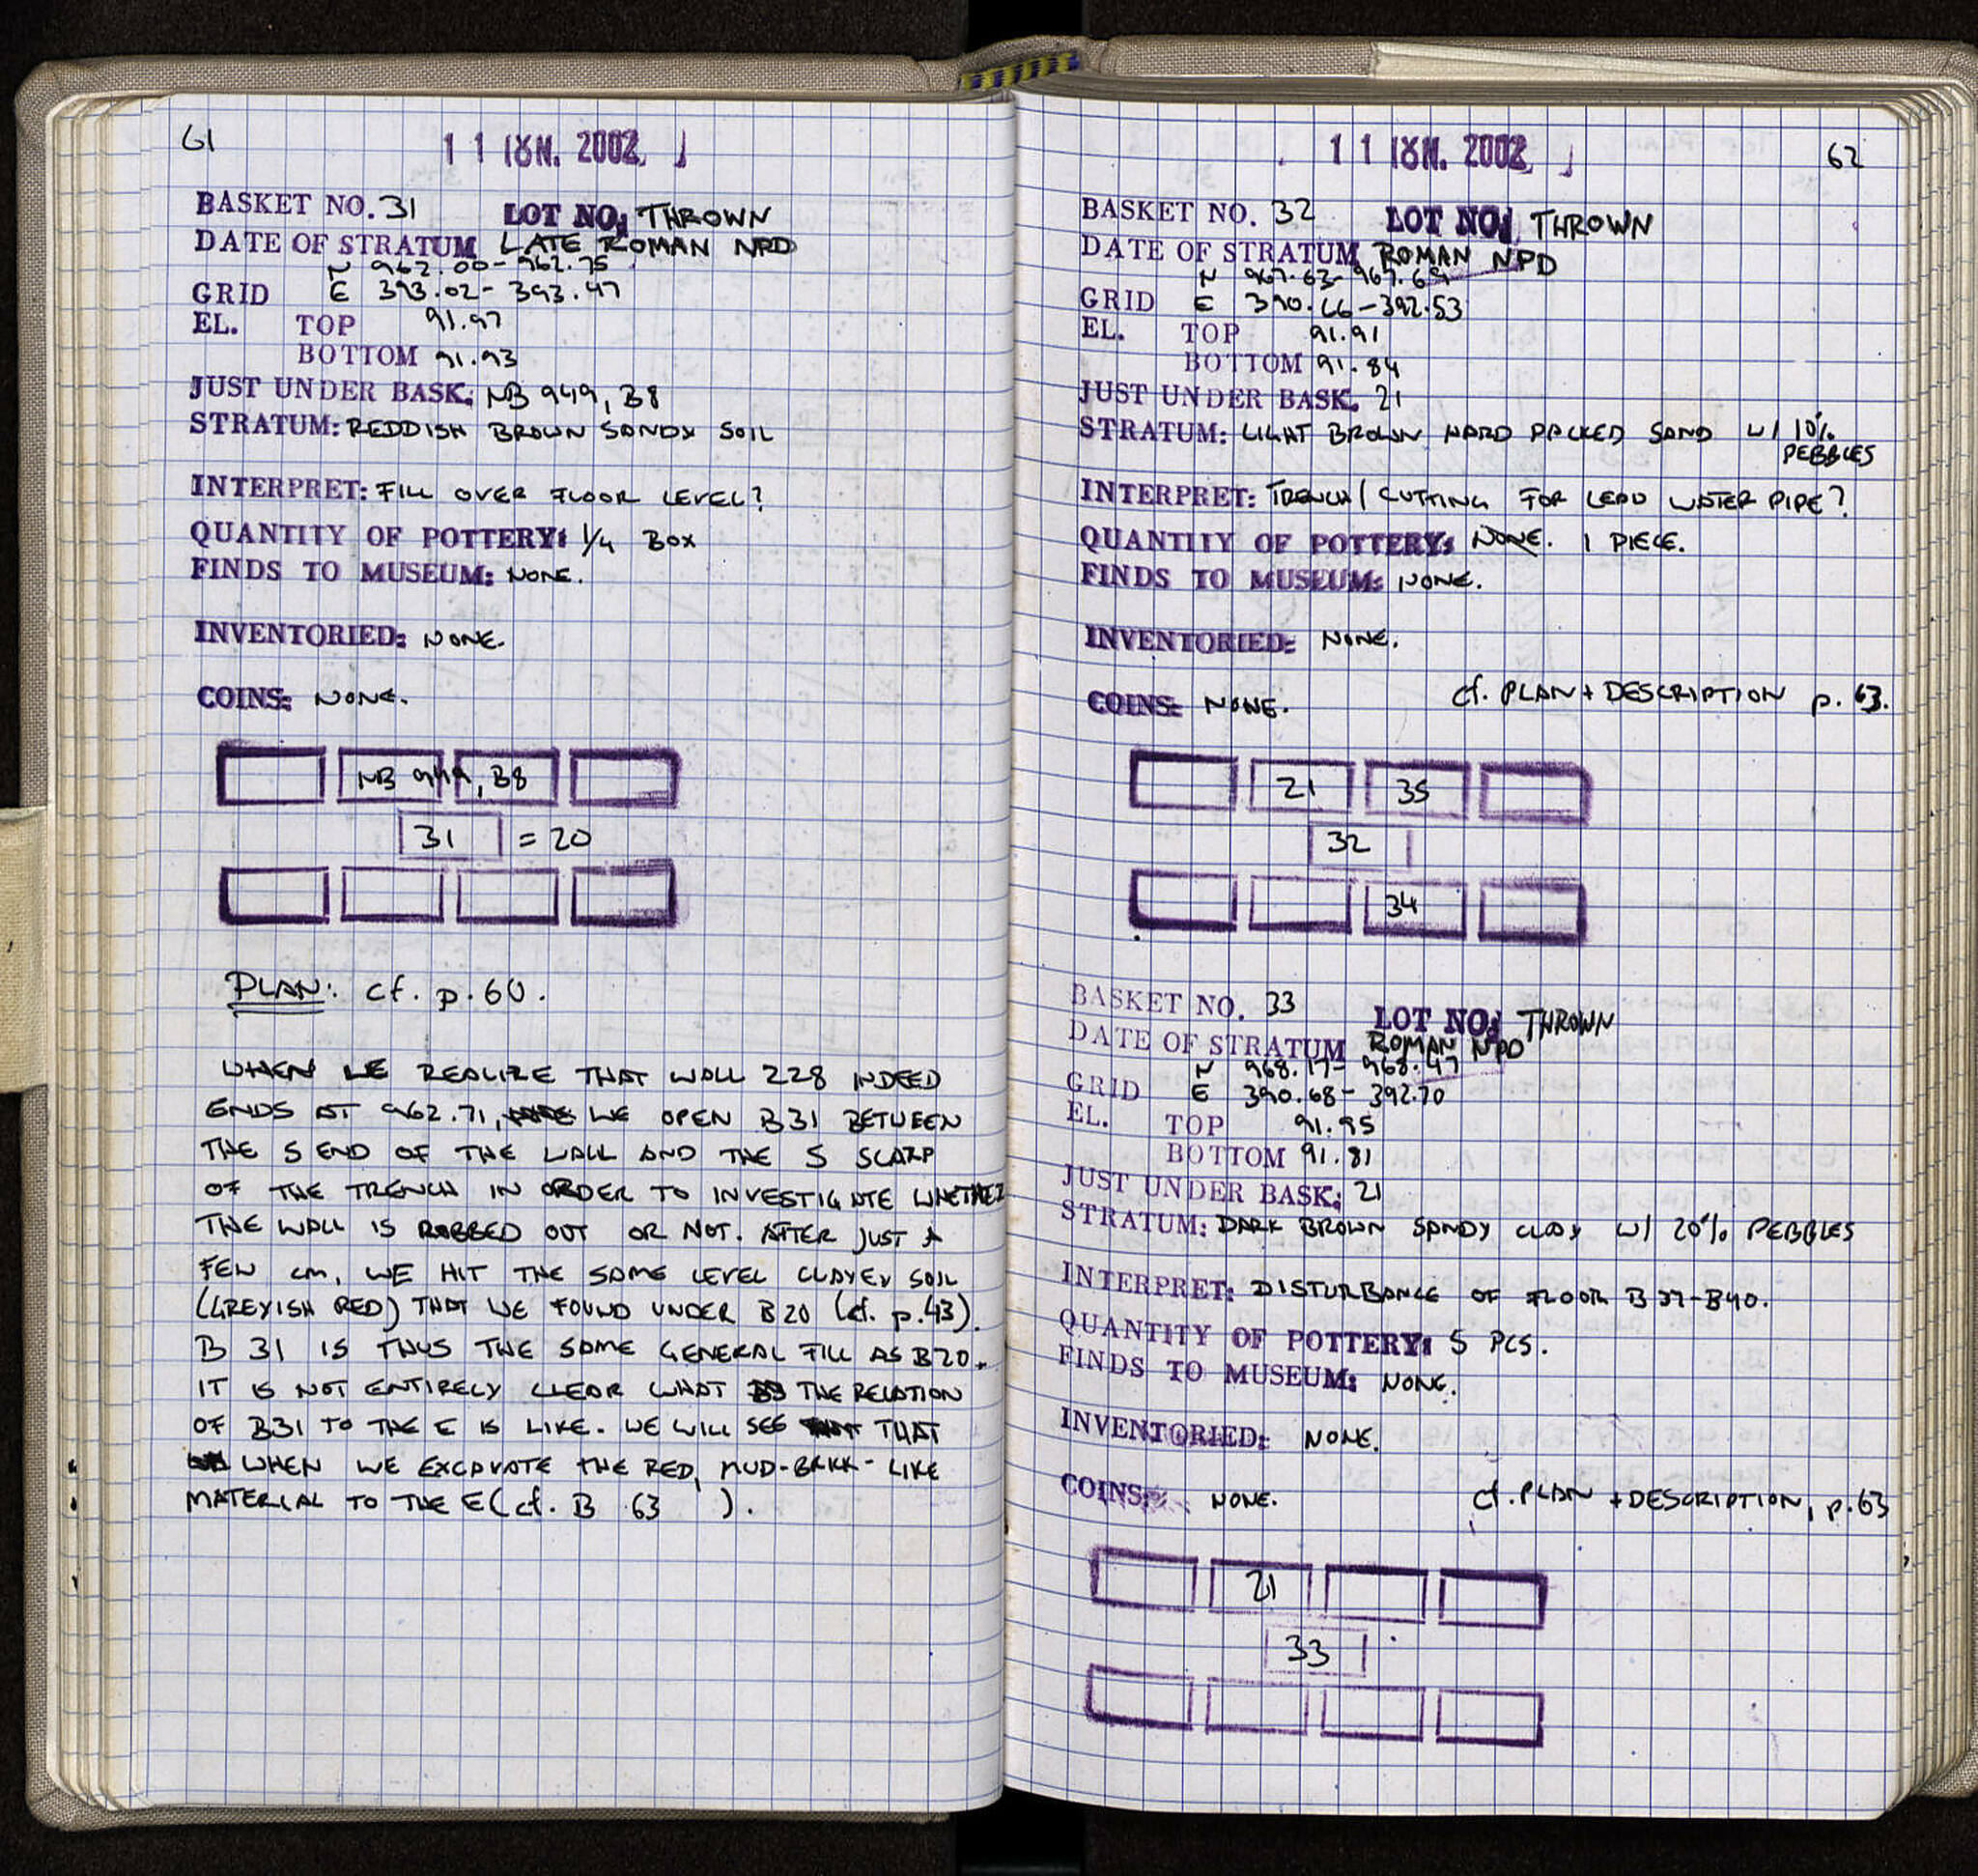 61
11 IȢN. 2002
BASKET NO. 31 LOT NO: THROWN
DATE OF STRATUM LATE ROMAN NPD
N 962.00-962.75
GRID E 393.02-393.47
EL. TOP 91.97
BOTTOM 91.93
JUST UNDER BASK: NB 949, B8
STRATUM: REDDISH BROWN SANDY SOIL
INTERPRET: FILL OVER FLOOR LEVEL?
QUANTITY OF POTTERY: 1/4 BOX
FINDS TO MUSEUM: NONE.
INVENTORIED: NONE.
COINS: NONE.
NB 949, B8
31 = 20
PLAN: cf. p. 60.
WHEN WE REALIZE THAT WALL 228 INDEED
ENDS AT 962.71, WE OPEN B31 BETWEEN
THE S END OF THE WALL AND THE S SCARP
OF THE TRENCH IN ORDER TO INVESTIGATE WHETHER
THE WALL IS ROBBED OUT OR NOT. AFTER JUST A
FEW cm, WE HIT THE SAME LEVEL CLAYEY SOIL
(GREYISH RED) THAT WE FOUND UNDER B20 (cf. p. 43).
B 31 IS THUS THE SAME GENERAL FILL AS B20.
IT IS NOT ENTIRELY CLEAR WHAT THE RELATION
OF B31 TO THE E IS LIKE. WE WILL SEE THAT
WHEN WE EXCAVATE THE RED, MUD-BRICK-LIKE
MATERIAL TO THE E (cf. B 63 ).
11 IȢN. 2002
62
BASKET NO. 32 LOT NO: THROWN
DATE OF STRATUM ROMAN NPD
N 967.63-967.69
GRID E 390.66-392.53
EL. TOP 91.91
BOTTOM 91.84
JUST UNDER BASK. 21
STRATUM: LIGHT BROWN HARD PACKED SAND W/ 10%
PEBBLES
INTERPRET: TRENCH/CUTTING FOR LEAD WATER PIPE?
QUANTITY OF POTTERY: NONE. 1 PIECE.
FINDS TO MUSEUM: NONE.
INVENTORIED: NONE.
COINS: NONE. cf. PLAN + DESCRIPTION p. 63.
21 35
32
34
BASKET NO. 33 LOT NO: THROWN
DATE OF STRATUM ROMAN NPD
N 968.17-968.47
GRID E 390.68-392.70
EL. TOP 91.95
BOTTOM 91.81
JUST UNDER BASK: 21
STRATUM: DARK BROWN SANDY CLAY W/ 20% PEBBLES
INTERPRET: DISTURBANCE OF FLOOR B 37-B40.
QUANTITY OF POTTERY: 5 PCS.
FINDS TO MUSEUM: NONE.
INVENTORIED: NONE.
COINS: NONE. cf. PLAN + DESCRIPTION, p. 63
21
33